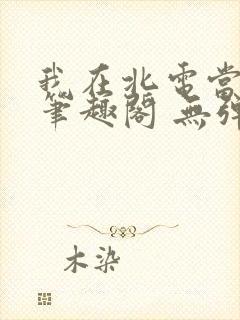 我在北電當
筆趣閣 無彈
木染